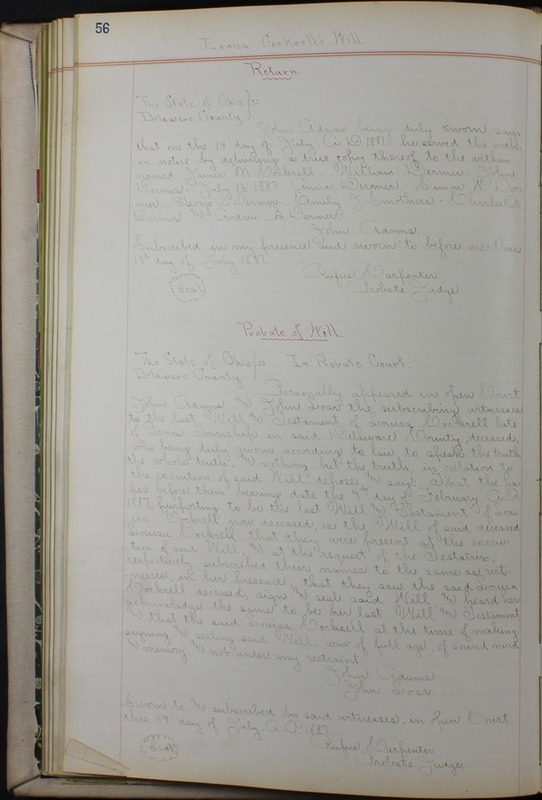 56
Louisa Cockrell's Will
Return.
The State of Ohio } ss
Delaware County
John Adams being duly sworn says
that on the 14 day of July A.D. 1887 he served the with
in notice by delivering a true copy thereof to the within
named James M. Cockrell, William Dermer - John
Dermer July 16 1887. Dermer Simon N. Der
mer George Dermer - Emily J. Smothers - Charles
Dermer & Andrew B. Dermer
John Adams.
Subscribed in my presence and sworn to before me this
19th day of July 1887
Rufus Carpenter
Seal
Probate Judge
Probate of Will.
The State of Ohio } ss In Probate Court.
Delaware County
Personally appeared in open Court
John Adams & John Loar the subscribing witnesses
to the last Will & Testament of Louisa Cockrell late
of Genoa Township in said Delaware County, deceased,
who being duly sworn according to law to speak the truth
the whole truth, & nothing but the truth, in relation to
the execution of said Will, depose & say: That the pa
per before them bearing date the day of February A.D.
1887, purporting to be the last Will & Testament of Lou
isa Cockrell now deceased, is the Will of said deceased
Louisa Cockrell, that they were present at the execu
tion of said Will, & at the request of the Testatrix,
respectively subscribed their names to the same as wit
nesses, in her presence, that they saw the said Louisa
Cockrell deceased, sign & seal said Will & heard her
acknowledge the same to be her last Will and Testament
& that the said Louisa Cockrell at the time of making,
signing & sealing said Will, was of full age, of sound mind
& memory & not under any restraint
John Adams
John Loar.
Sworn to & subscribed by said witnesses in open Court
this 19th day of July A.D. 1887.
Rufus Carpenter
Seal
Probate Judge